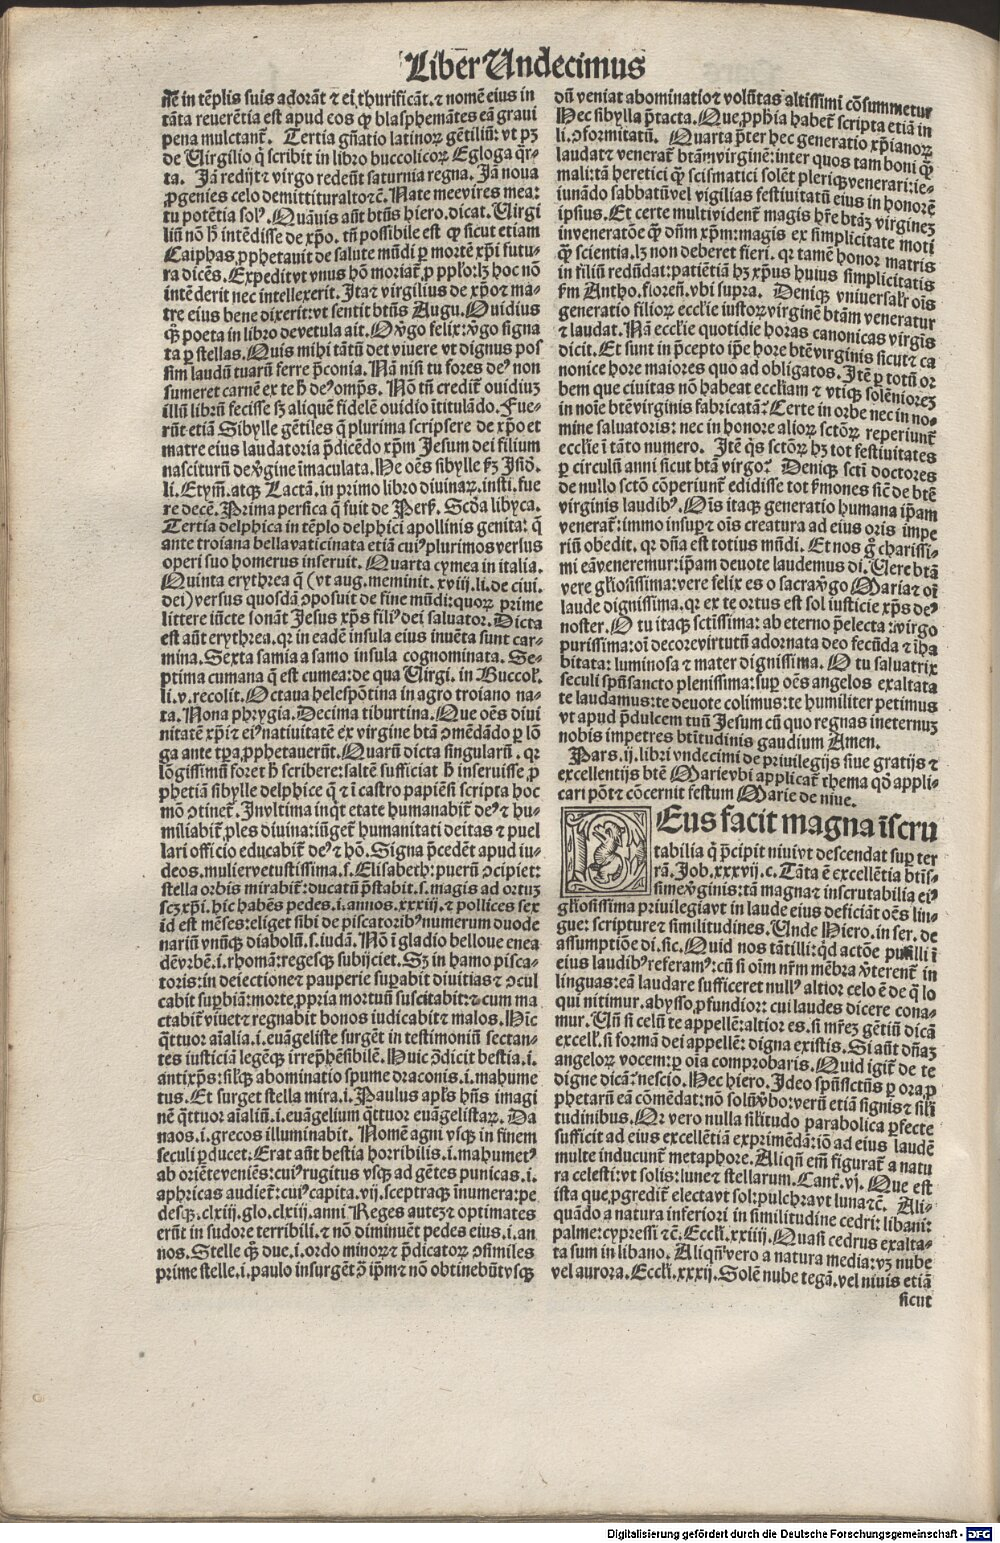 Liber Undecimus
ñe in tẽplis suis adorãt ⁊ ei thurificãt. ⁊ nomẽ eius in
tãta reuerẽtia est apud eos ꝙ blasphemãtes eã graui
pena mulctant᷑. Tertia gñatio latinoꝝ gẽtiliũ: vt pꝫ
de Uirgilio q̃ scribit in libro buccolicoꝝ Egloga q̃r-
ta. Jã redijt ⁊ virgo redeũt saturnia regna. Jã noua
ꝓgenies celo demittitur alto ⁊c̃. Nate mee vires mea:
tu potẽtia solꝰ. Quãuis aũt btũs hiero. dicat. Uirgi
liũ nõ h̃ intẽdisse de xp̃o. tñ possibile est ꝙ sicut etiam
Caiphas ꝓphetauit de salute mũdi ꝑ mortẽ xp̃i futu-
ra dicẽs. Expedit vt vnus hõ moriat᷑ ꝓ pplo: lꝫ hoc nõ
intẽderit nec intellexerit. Ita ⁊ virgilius de xp̃o ⁊ ma-
tre eius bene dixerit: vt sentit btũs Augu. Ouidius
qꝫ poeta in libro de vetula ait. O v̓go felix: v̓go signa
ta ꝑ stellas. Quis mihi tãtũ det viuere vt dignus pos
sim laudũ tuarũ ferre p̃conia. Nã nisi tu fores deꝰ non
sumeret carnẽ ex te h̃ deꝰ omp̃s. Nõ tñ credit᷑ ouidiuꝫ
illũ librũ fecisse sꝫ aliquẽ fidelẽ ouidio ĩtitulãdo. Fue-
rũt etiã Sibylle gẽtiles q̃ plurima scripsere de xp̃o et
matre eius laudatoria p̃dicẽdo xp̃m Jesum dei filium
nasciturũ de v̓gine ĩmaculata. He oẽs sibylle ẜm Jsid̃.
li. Etym̃. atqꝫ Lactã. in primo libro diuinaꝝ. insti. fue
re decẽ. Prima persica q̃ fuit de Perẜ. Scd̃a libyca.
Tertia delphica in tẽplo delphici apollinis genita: q̃
ante troiana bella vaticinata etiã cuiꝰ plurimos versus
operi suo homerus inseruit. Quarta cymea in italia.
Quinta erythrea q̃ (vt aug. meminit. xviij. li. de ciui.
dei) versus quosdã ꝯposuit de fine mũdi: quoꝝ prime
littere iũcte sonãt Jesus xp̃s filiꝰ dei saluator. Dicta
est aũt erythrea. qꝛ in eadẽ insula eius inuẽta sunt car-
mina. Sexta samia a samo insula cognominata. Se-
ptima cumana q̃ est cumea: de qua Uirgi. in Buccol̃.
li. v. recolit. Octaua helespõtina in agro troiano na-
ta. Nona phrygia. Decima tiburtina. Que oẽs diui
nitatẽ xp̃i ⁊ eiꝰ natiuitatẽ ex virgine btã ꝯmẽdãdo ꝑ lõ
ga ante tp̃a ꝓphetauerũt. Quarũ dicta singularũ. qꝛ
lõgissimũ foret h̃ scribere: saltẽ sufficiat h̃ inseruisse ꝓ
phetiã sibylle delphice q̃ ⁊ ĩ castro papiẽsi scripta hoc
mõ ꝯtinet᷑. In vltima inq̃t etate humanabit᷑ deꝰ ⁊ hu-
miliabit᷑ ꝓles diuina: iũget᷑ humanitati deitas ⁊ puel
lari officio educabit᷑ deꝰ ⁊ hõ. Signa p̃cedẽt apud iu-
deos. mulier vetustissima. s. Elisabeth: puerũ ꝯcipiet:
stella orbis mirabit᷑: ducatũ p̃stabit. s. magis ad ortuꝫ
scꝫ xp̃i. hic habẽs pedes. i. annos. xxxiij. ⁊ pollices sex
id est mẽses: eliget sibi de piscatoribꝰ numerum duode
nariũ vnũqꝫ diabolũ. s. iudã. Nõ ĩ gladio belloue enea
dẽ vrbẽ. i. rhomã: regesqꝫ subijciet. Sꝫ in hamo pisca-
toris: in deiectione ⁊ pauperie suꝑabit diuitias ⁊ ꝯcul
cabit suꝑbiã: morte ꝓpria mortuũ suscitabit: ⁊ cum ma
ctabit᷑ viuet ⁊ regnabit bonos iudicabit ⁊ malos. Hĩc
q̃ttuor aĩalia. i. euangeliste surgẽt in testimoniũ sectan-
tes iusticiã legẽqꝫ irrep̃hẽsibilẽ. Huic ꝯ̃dicit bestia. i.
antixp̃s: silr̃qꝫ abominatio spume draconis. i. mahume
tus. Et surget stella mira. i. Paulus apl̃s hñs imagi
nẽ q̃ttuor aĩaliũ. i. euãgelium q̃ttuor euãgelistaꝝ. Da
naos. i. grecos illuminabit. Nomẽ agni vsqꝫ in finem
seculi ꝑducet: Erat aũt bestia horribilis. i. mahumetꝰ
ab oriẽte veniẽs: cuiꝰ rugitus vsqꝫ ad gẽtes punicas. i.
aphricas audiet᷑: cuiꝰ capita. vij. sceptraqꝫ ĩnumera: pe
desqꝫ. clxiij. glo. clxiij. anni Reges autẽ ⁊ optimates
erũt in sudore terribili. ⁊ nõ diminuẽt pedes eius. i. an
nos. Stelle qꝫ due. i. ordo minoꝝ ⁊ p̃dicatoꝝ ꝯsimiles
prime stelle. i. paulo insurgẽt ꝯ̃ ip̃m ⁊ nõ obtinebũt vsqꝫ
dũ veniat abominatio ⁊ volũtas altissimi cõsummetur
Hec sibylla p̃tacta. Que ꝓph̃ia habet᷑ scripta etiã in
li. ꝯformitatũ. Quarta p̃ter hec generatio xp̃ianoꝝ
laudat ⁊ venerat᷑ btãm virginẽ: inter quos tam boni qꝫ
mali: tã heretici qꝫ scismatici solẽt pleriqꝫ venerari: ie-
iunãdo sabbatũ vel vigilias festiuitatũ eius in honorẽ
ipsius. Et certe multi vident᷑ magis hr̃e btãꝫ virgineꝫ
in veneratõe qꝫ dñm xp̃m: magis ex simplicitate moti
qꝫ scientia. lꝫ non deberet fieri. qꝛ tamẽ honor matris
in filiũ redũdat: patiẽtiã hꝫ xp̃us huius simplicitatis
ẜm Antho. floreñ. vbi supra. Deniqꝫ vniuersalr̃ oĩs
generatio filioꝝ eccl̃ie iustoꝝ virginẽ btãm veneratur
⁊ laudat. Nã eccl̃ie quotidie horas canonicas virgĩs
dicit. Et sunt in p̃cepto ip̃e hore btẽ virginis sicut ⁊ ca
nonice hore maiores quo ad obligatos. Itẽ ꝑ totũ or
bem que ciuitas nõ habeat eccl̃iam ⁊ vtiqꝫ solẽnioreꝫ
in noĩe btẽ virginis fabricatã? Certe in orbe nec in no-
mine saluatoris: nec in honore alioꝝ sctõꝝ reperiunt᷑
eccl̃ie ĩ tãto numero. Itẽ q̃s sctõꝝ hꝫ tot festiuitates
ꝑ circulũ anni sicut btã virgo? Deniqꝫ scti doctores
de nullo sctõ cõperiunt᷑ edidisse tot ẜmones sic̃ de btẽ
virginis laudibꝰ. Oĩs itaqꝫ generatio humana ip̃am
venerat᷑: immo insuꝑ ⁊ oĩs creatura ad eius oris impe
riũ obedit. qꝛ dña est totius mũdi. Et nos g̃ charissi-
mi eã veneremur: ip̃am deuote laudemus di. Uere btã
vere gl̃iosissima: vere felix es o sacra v̓go Maria ⁊ oĩ
laude dignissima. qꝛ ex te ortus est sol iusticie xp̃s deꝰ
noster. O tu itaqꝫ sctĩssima: ab eterno p̃electa: virgo
purissima: oĩ decore virtutũ adornata deo fecũda ⁊ ĩha
bitata: luminosa ⁊ mater dignissima. O tu saluatrix
seculi spũsancto plenissima: suꝑ oẽs angelos exaltata
te laudamus: te deuote colimus: te humiliter petimus
vt apud p̃dulcem tuũ Jesum cũ quo regnas in eternuꝫ
nobis impetres btĩtudinis gaudium Amen.
Pars. ij. libri vndecimi de priuilegijs siue gratijs ⁊
excellentijs btẽ Marie vbi applicat᷑ thema qõ appli-
cari põt ⁊ cõcernit festum Marie de niue.
DEus facit magna ĩscru
tabilia q̃ p̃cipit niui vt descendat suꝑ ter
rã. Job. xxxvij. c. Tãta ẽ excellẽtia btĩs-
sime v̓ginis: tã magna ⁊ inscrutabilia eiꝰ
gl̃iosissima priuilegia vt in laude eius deficiãt oẽs lin-
gue: scripture ⁊ similitudines. Unde Hiero. in ser. de
assumptiõe di. sic. Quid nos tãtilli: qd̃ actõe pusilli ĩ
eius laudibꝰ referamꝰ: cũ si oĩm nr̃m mẽbra v̓terent᷑ in
linguas: eã laudare sufficeret nullꝰ altior celo ẽ de q̃ lo
qui nitimur. abysso ꝓfundior: cui laudes dicere cona-
mur. Uñ si celũ te appellẽ: altior es. si mr̃eꝫ gẽtiũ dicã
excell̃. si formã dei appellẽ: digna existis. Si aũt dñãꝫ
angeloꝝ vocem: ꝑ oĩa comprobaris. Quid igit᷑ de te
digne dicã? nescio. Hec hiero. Ideo spũssctũs ꝑ ora ꝓ
phetarũ eã cõmẽdat: nõ solũ v̓bo: verũ etiã signis ⁊ sil̃i
tudinibus. Qr̃ vero nulla sil̃itudo parabolica ꝑfecte
sufficit ad eius excellẽtiã exprimẽdã: iõ ad eius laudẽ
multe inducunt᷑ metaphore. Aliqñ em̃ figurat᷑ a natu
ra celesti: vt solis: lune ⁊ stellarum. Cant̃. vj. Que est
ista que ꝓgredit᷑ electa vt sol: pulchra vt luna ⁊c̃. Ali-
quãdo a natura inferiori in similitudine cedri: libani:
palme: cypressi ⁊c̃. Eccl̃i. xxiiij. Quasi cedrus exalta-
ta sum in libano. Aliqñ vero a natura media: vꝫ nube
vel aurora. Eccl̃i. xxxij. Solẽ nube tegã. vel niuis etiã
sicut
Digitalisierung gefördert durch die Deutsche Forschungsgemeinschaft - DFG